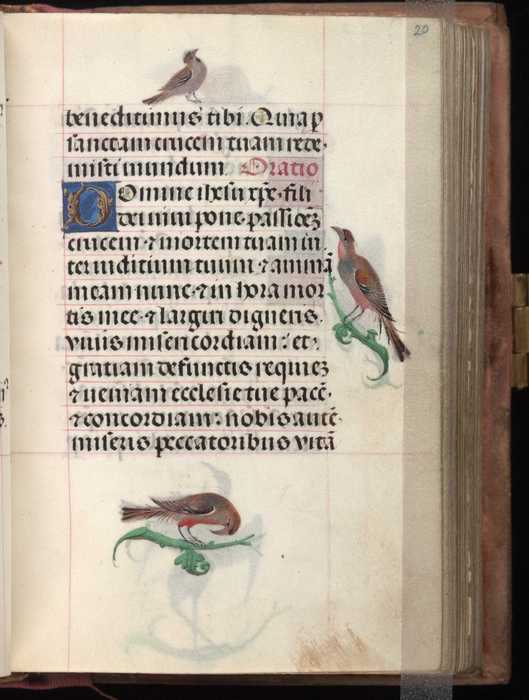 20
benedicimus tibi. Quia p̱
sanctam crucem tuam rede-
misti mundum. Oratio
Domine ihesu xp̄e. fili
dei vivi pone. passionē
crucem ⁊ mortem tuam in
ter iuditium tuum. ⁊ animā
meam nunc. ⁊ in hora mor
tis mee. ⁊ largiri digneris.
vivis misericordiam: et.
gratiam defunctis requiez
⁊ veniam ecclesie tue pacē.
⁊ concordiam: nobis autē.
miseris peccatoribus vitā